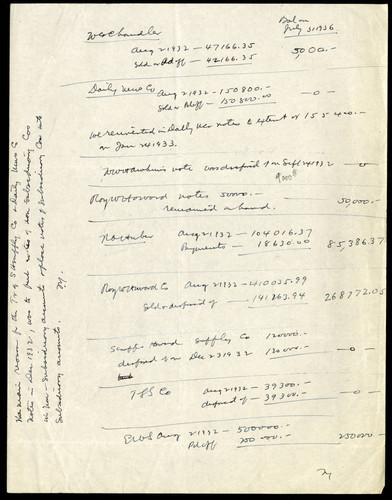 Bal on
July 31 1936
W G Chandler
Aug 2 1932 — 47166.35
Sold or Pd off — 42166.35
5000.—
Daily News Co
Aug 2 1932 — 150800.—
Sold or Pd off — 150800.00
— 0 —
We reinvested in Daily News notes to extent of 155400.—
on Jan 24 1933.
WW Hawkins note was disposed of on Sept 24 1932
— 0
Roy W Howard notes 50000.—
remained on hand.
50,000.—
Aug 2 1932 — 104016.37
Payments — 18630.00
85,386.37
Roy W Howard Co
Aug 2 1932 — 410035.99
Sold or disposed of — 141263.94
268772.05
Scripps Howard Supply Co 120000.—
disposed of on Dec 23 1932 120000 —
— 0 —
T & S Co
Aug 2 1932 — 39300.—
disposed of — 39300.—
— 0 —
Aug 2 1932 — 500000.—
Pd off 250000.—
250000 —
The main reason for the T & S Supply Co & Daily News Co
notes in Dec 1932, was to put notes of non Subsidiary Cos
in Non-Subsidiary accounts & place notes of Subsidiary Cos into
Subsidiary accounts.